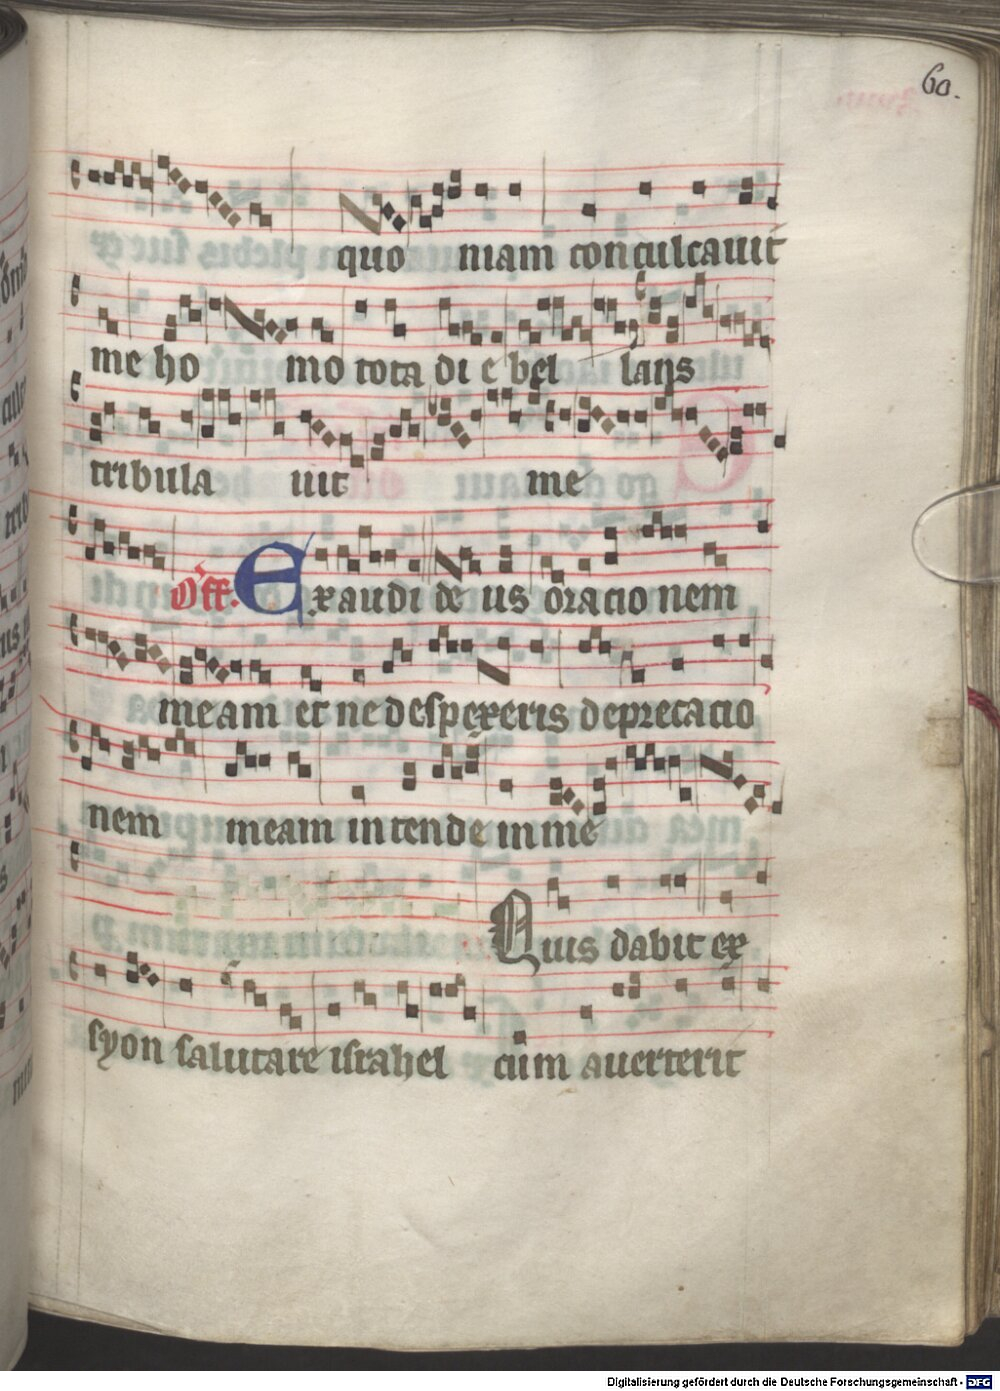 60.
quo niam conculcauit
me ho mo tota di e bel lans
tribula uit me
Off. Exaudi de us oracio nem
meam et ne despexeris deprecacio
nem meam intende in me
Quis dabit ex
syon salutare israhel cum auerterit
Digitalisierung gefördert durch die Deutsche Forschungsgemeinschaft - DFG